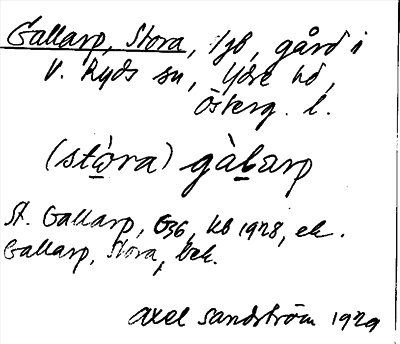 Gallarp, Stora, lgh, gård i
V. Ryds sn, Ydre hd,
Österg. l.
(stòra) gàlarp
St. Gallarp, G36, kb 1928, ek.
Gallarp, Stora, bek.
Axel Sandström 1929